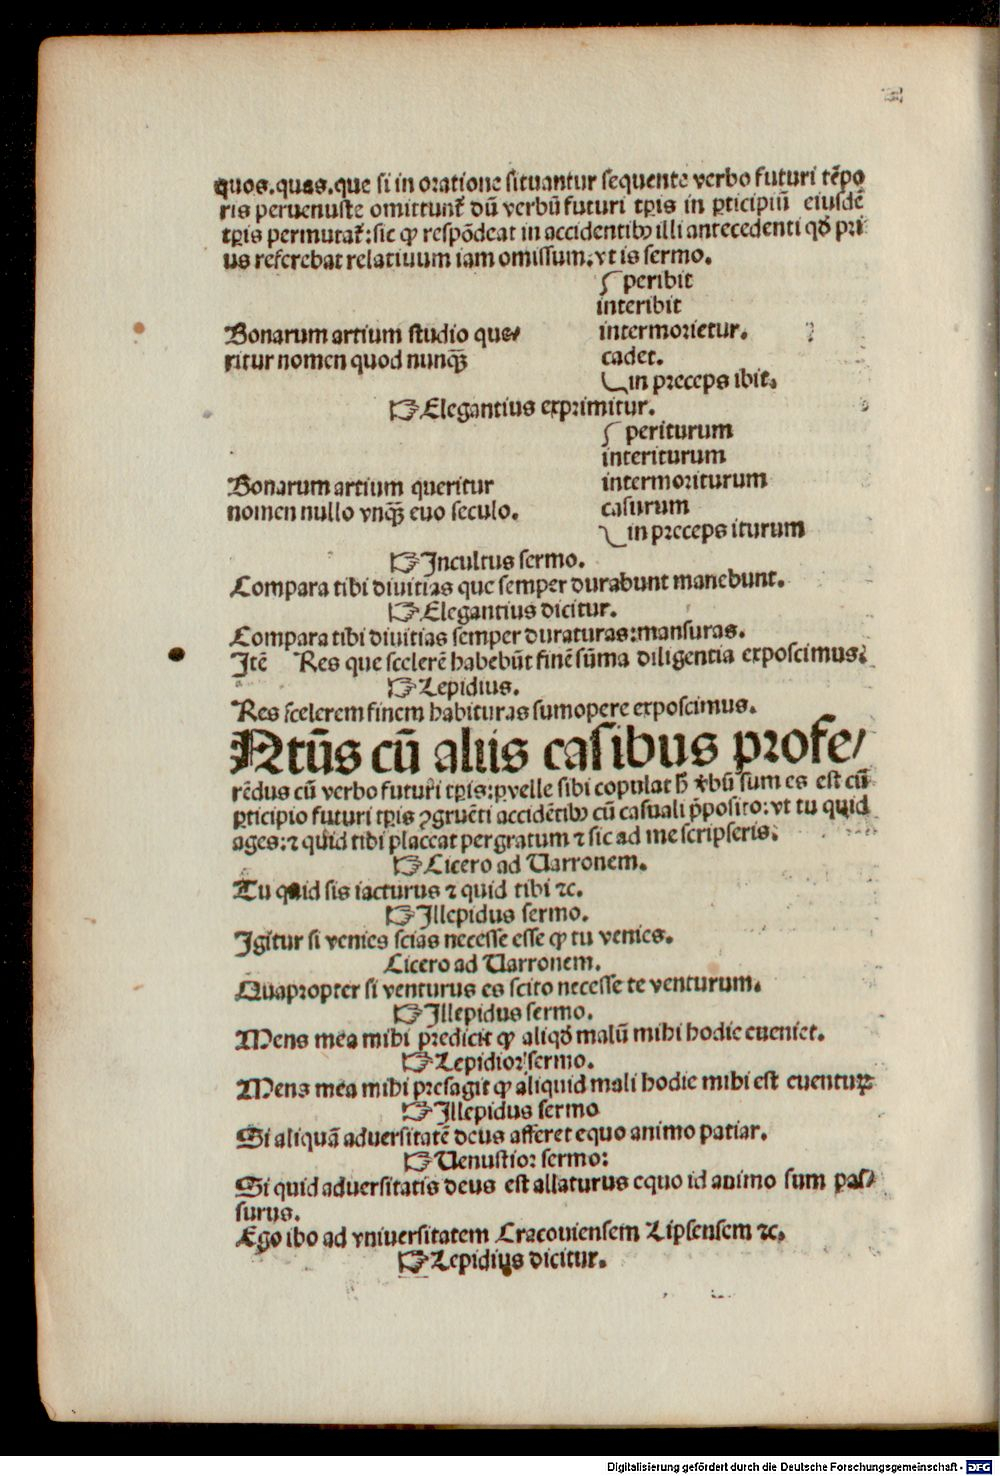 quos.quas.que si in oratione situantur sequente verbo futuri tẽpo
ris peruenuste omittunt᷑ dũ verbũ futuri tꝑis in ꝑticipiũ eiusdẽ
tꝑis permutat᷑:sic ꝙ respõdeat in accidentibꝰ illi antecedenti qđ pri
us referebat relatiuum iam omissum.vt is sermo.
peribit
interibit
Bonarum artium studio que⸗ intermorietur.
ritur nomen quod nunqꝫ̃ cadet.
in preceps ibit.
☞Elegantius exprimitur.
periturum
interiturum
Bonarum artium queritur intermoriturum
nomen nullo vnqꝫ̃ euo seculo. casurum
in preceps iturum
☞Incultus sermo.
Compara tibi diuitias que semper durabunt manebunt.
☞Elegantius dicitur.
Compara tibi diuitias semper duraturas:mansuras.
Itẽ Res que scelerẽ habebũt finẽ sũma diligentia exposcimus.
☞Lepidius.
Res scelerem finem habituras sumopere exposcimus.
Ntũs cũ aliis casibus profe⸗
rẽdus cũ verbo futuri tꝑis:ꝑvelle sibi copulat ħ v̓bũ sum es est cũ
ꝑticipio futuri tꝑis ꝯgruẽti accidẽtibꝰ cũ casuali p̃posito:vt tu quid
ages:⁊ quid tibi placeat pergratum ⁊ sic ad me scripseris.
☞Cicero ad Uarronem.
Tu quid sis iacturus ⁊ quid tibi ⁊c.
☞Illepidus sermo.
Igitur si venies scias necesse esse ꝙ tu venies.
Cicero ad Uarronem.
Quapropter si venturus es scito necesse te venturum.
☞Illepidus sermo.
Mens mea mihi predicit ꝙ aliqđ malũ mihi hodie eueniet.
☞Lepidior sermo.
Mens mea mihi presagit ꝙ aliquid mali hodie mihi est euentuꝝ
☞Illepidus sermo
Si aliquã aduersitatẽ deus afferet equo animo patiar.
☞Uenustior sermo:
Si quid aduersitatis deus est allaturus equo id animo sum pas⸗
surus.
Ego ibo ad vniuersitatem Cracouiensem Lipsensem ⁊c.
☞Lepidius dicitur.
Digitalisierung gefördert durch die Deutsche Forschungsgemeinschaft - DFG